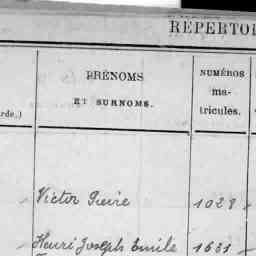 REPERTOI
PRÉNOMS
ET SURNOMS.
NUMÉROS
ma-
tricules.
rde.)
Victor Pierre 1028
Henri Joseph Emile 1631